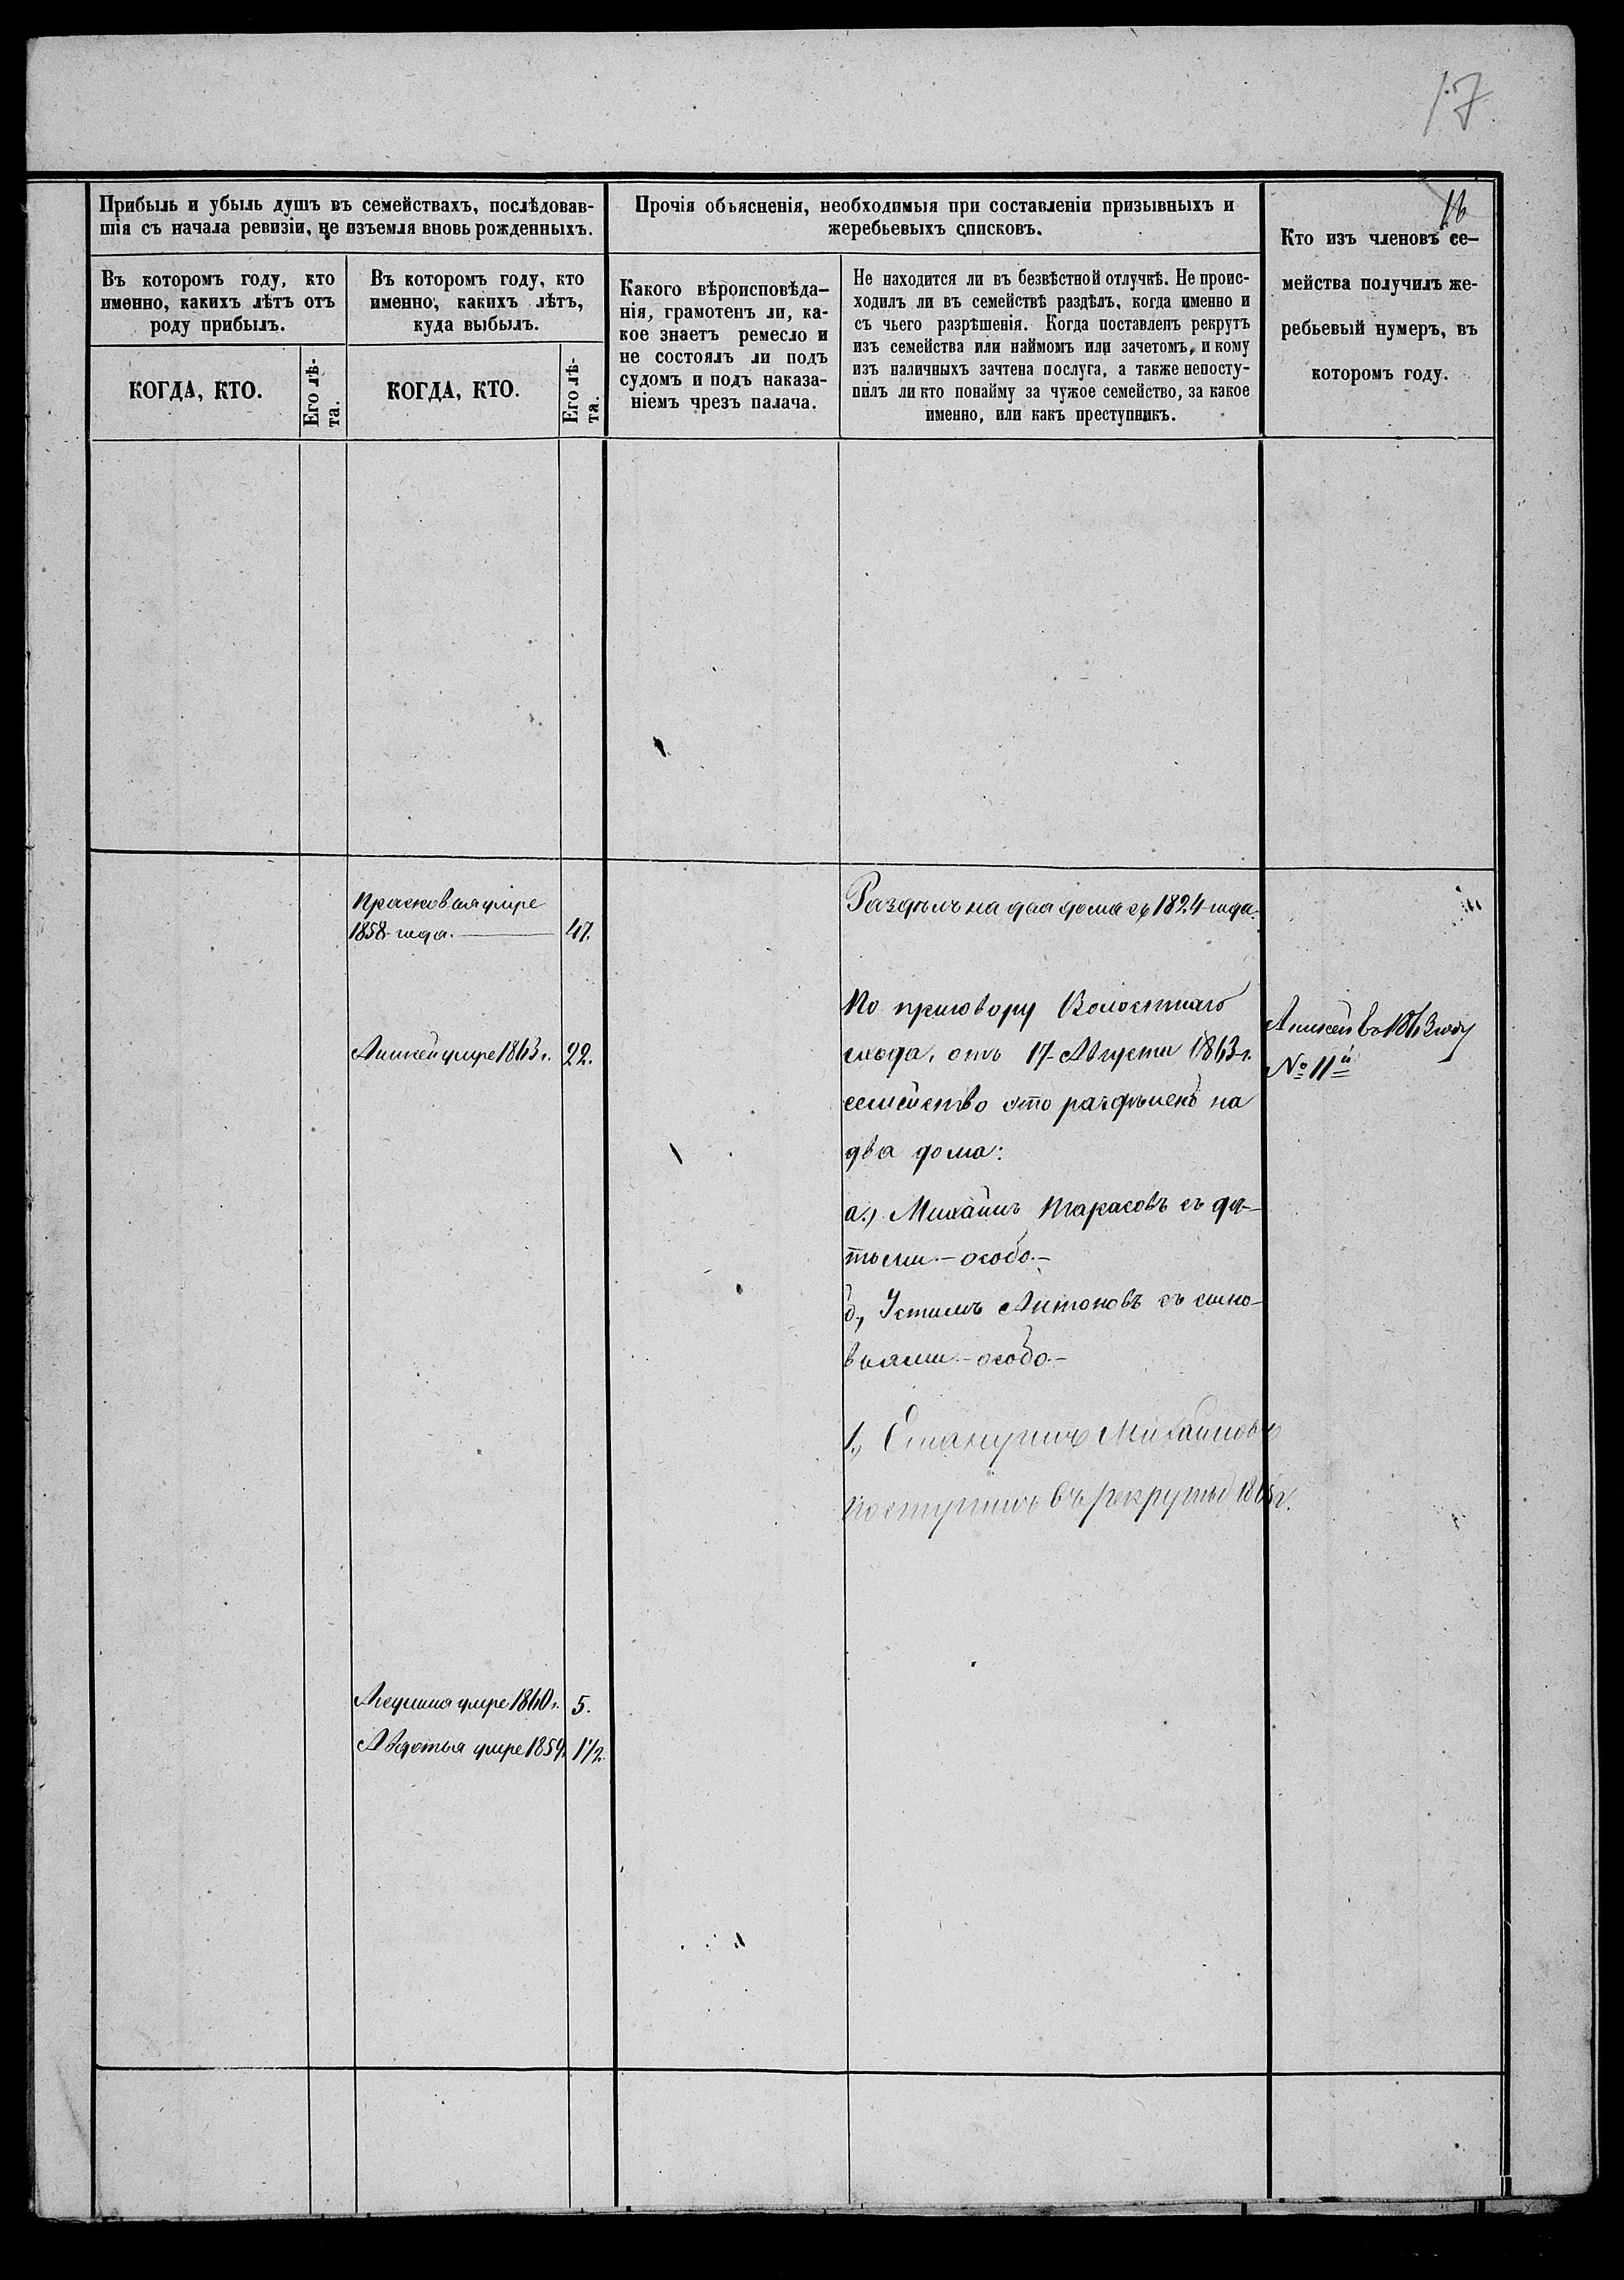 17
16
Прибыль и убыль душъ въ семействахъ, послѣдовав-
шія съ начала ревизіи, не изъемля вновь рожденныхъ.
Въ которомъ году, кто
именно, какихъ лѣтъ отъ
роду прибылъ.
КОГДА, КТО.
Его лѣ-
та.
Въ которомъ году, кто
именно, какихъ лѣтъ,
куда выбылъ.
КОГДА, КТО.
Его лѣ-
та.
Прочія объясненія, необходимыя при составленіи призывныхъ и
жеребьевыхъ списковъ.
Какого вѣроисповѣда-
нія, грамотенъ ли, ка-
кое знаетъ ремесло и
не состоялъ ли подъ
судомъ и подъ наказа-
ніемъ чрезъ палача.
Не находится ли въ безвѣстной отлучкѣ. Не проис-
ходилъ ли въ семействѣ раздѣлъ, когда именно и
съ чьего разрѣшенія. Когда поставленъ рекрутъ
изъ семейства или наймомъ или зачетомъ, и кому
изъ наличныхъ зачтена послуга, а также непосту-
пилъ ли кто понайму за чужое семейство, за какое
именно, или какъ преступникъ.
Кто изъ членовъ се-
мейства получилъ же-
ребьевый нумеръ, въ
которомъ году.
Прасковья умре
1858 года. 47.
Раздѣлъ на два дома съ 1824 года.
Аникей умре 1863 г. 22.
По приговору Волостнаго
схода, отъ 17 Августа 1863 г.
семейство это раздѣлено на
два дома:
а.) Михаилъ Тарасовъ съ дѣ-
тьми - особо. -
б., Устимъ Антоновъ съ сыно-
вьями - особо. -
1., Михайловъ
поступилъ въ рекруты 1865 г.
Аникей въ 1863 году
№ 11й
умре 1860 г. 5.
Авдотья умре 1859 1 1/2.